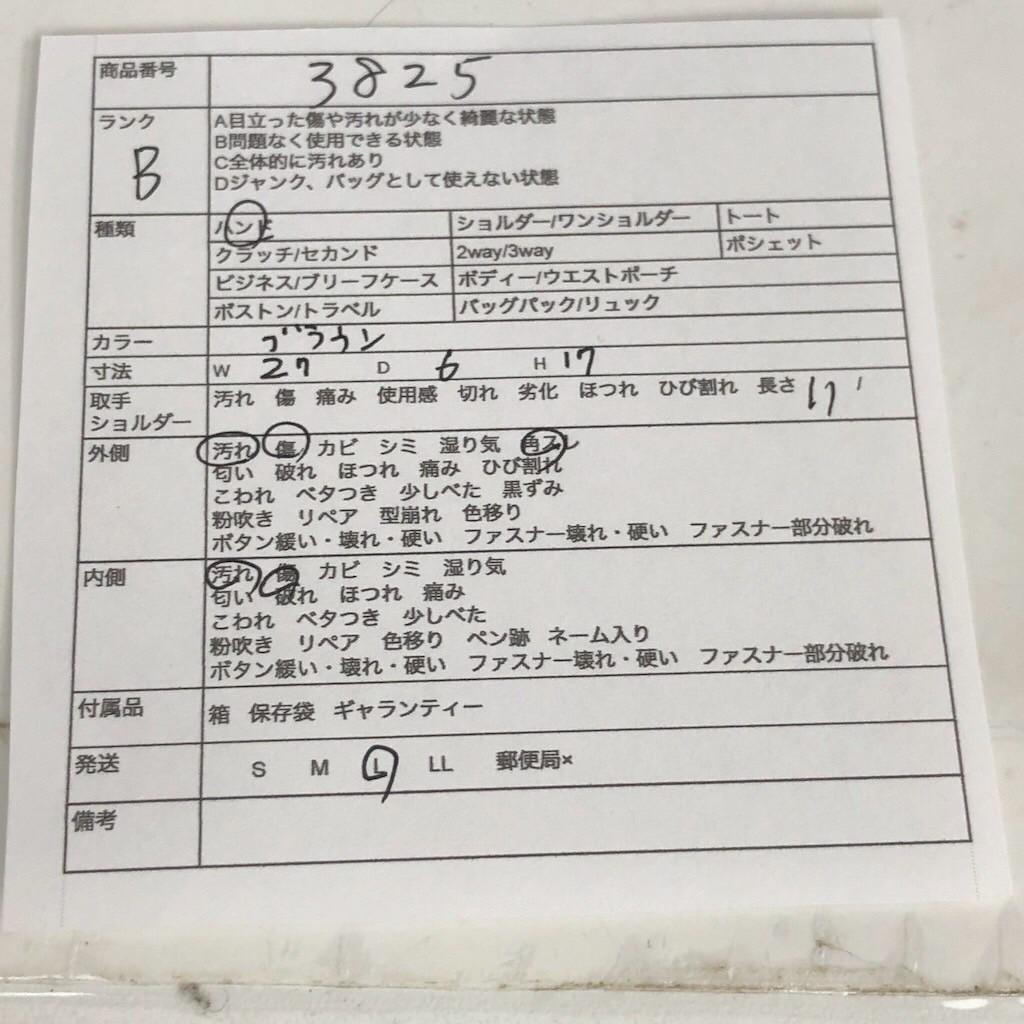 商品番号 3825
ランク A目立った傷や汚れが少なく綺麗な状態
B B問題なく使用できる状態
C全体的に汚れあり
Dジャンク、バッグとして使えない状態
種類 ハンド ショルダー/ワンショルダー トート
クラッチ/セカンド 2way/3way ポシェット
ビジネス/ブリーフケース ボディー/ウエストポーチ
ボストン/トラベル バッグパック/リュック
カラー ブラウン
寸法 W 27 D 6 H 17
取手 汚れ 傷 痛み 使用感 切れ 劣化 ほつれ ひび割れ 長さ
ショルダー
外側 汚れ 傷 カビ シミ 湿り気 角スレ
匂い 破れ ほつれ 痛み ひび割れ
こわれ ベタつき 少しべた 黒ずみ
粉吹き リペア 型崩れ 色移り
ボタン緩い・壊れ・硬い ファスナー壊れ・硬い ファスナー部分破れ
内側 汚れ 傷 カビ シミ 湿り気
匂い 破れ ほつれ 痛み
こわれ ベタつき 少しべた
粉吹き リペア 色移り ペン跡 ネーム入り
ボタン緩い・壊れ・硬い ファスナー壊れ・硬い ファスナー部分破れ
付属品 箱 保存袋 ギャランティー
発送 S M L LL 郵便局×
備考